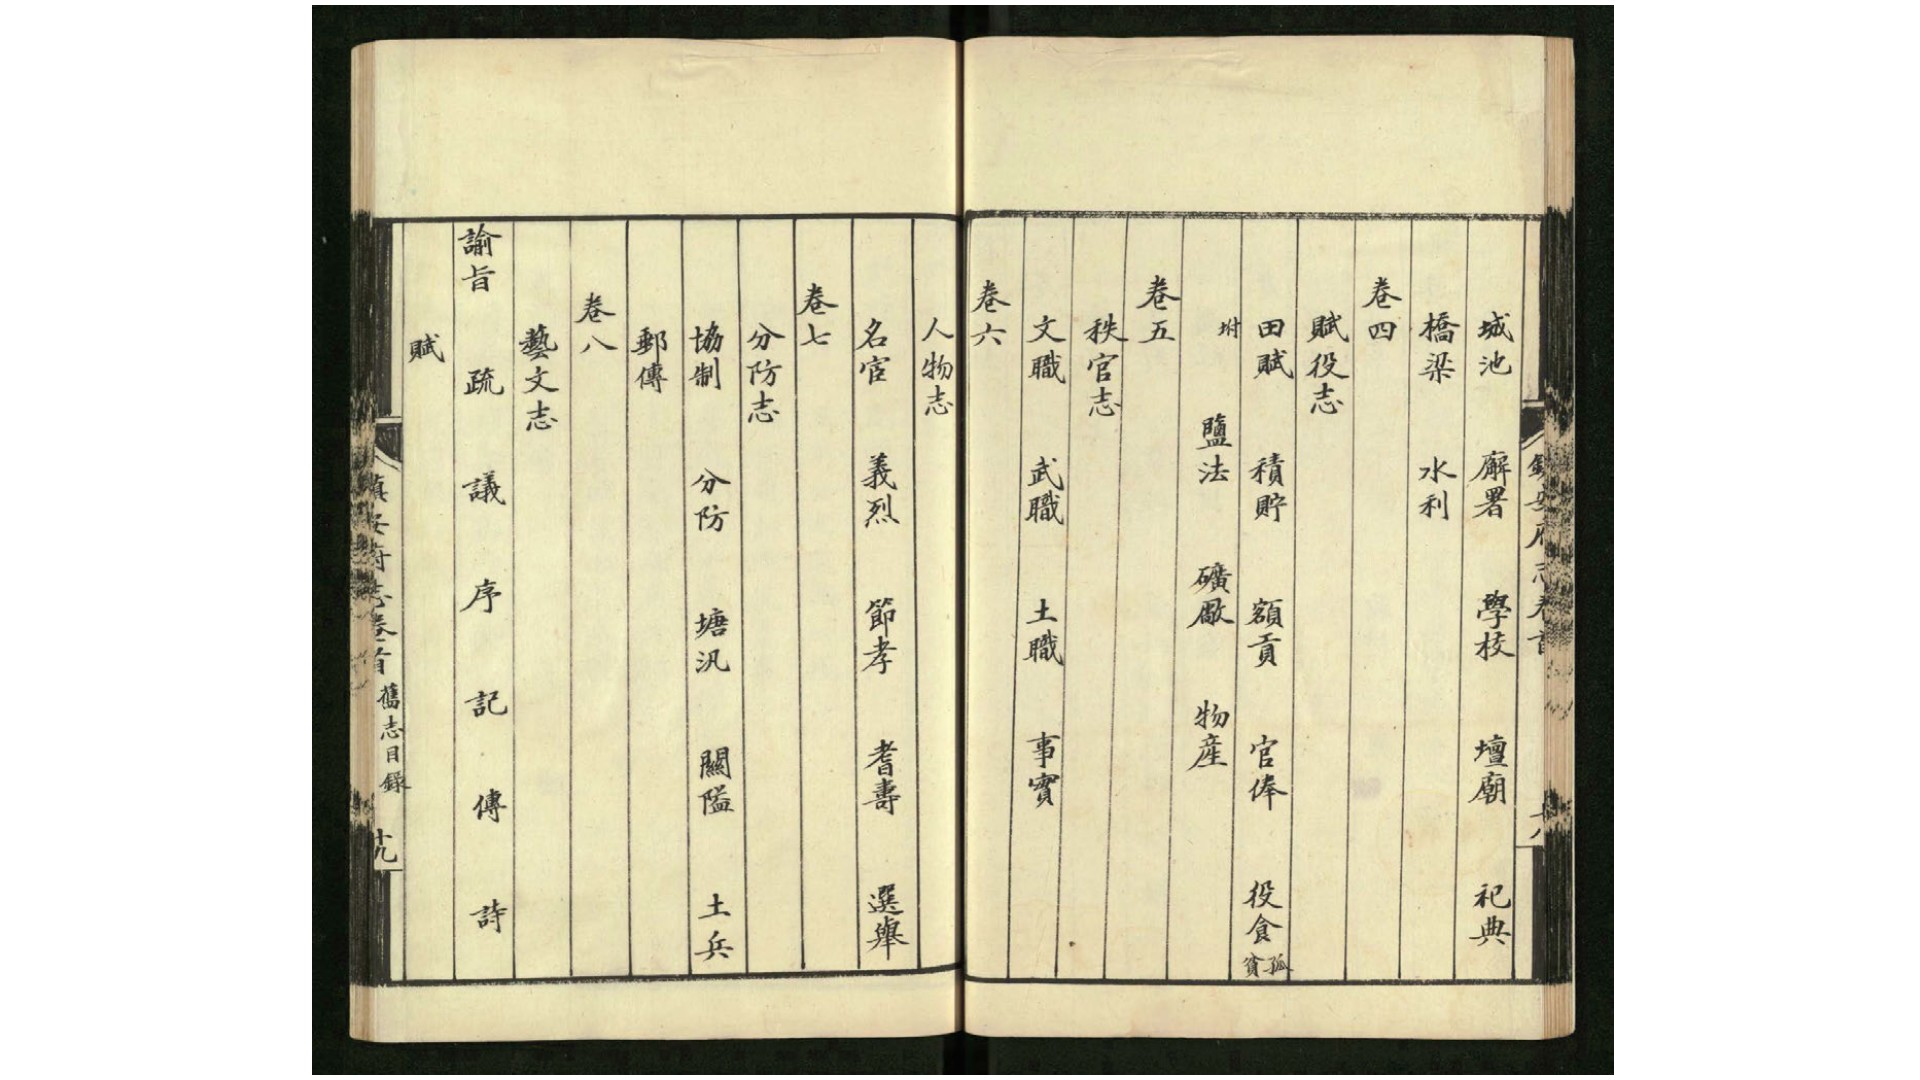 城池 廨署 學校 壇廟 祀典
橋梁 水利
卷四
賦役志
田賦 積貯 額貢 官俸 役食 孤貧
坿 鹽法 礦厰 物産
卷五
秩官志
文職 武職 土職 事實
卷六
人物志
名宦 義烈 節孝 耆壽 選舉
卷七
分防志
協制 分防 塘汛 關隘 土兵
郵傳
卷八
藝文志
諭旨 疏 議 序 記 傳 詩
賦
鎮安府志卷首 舊志目錄 十九